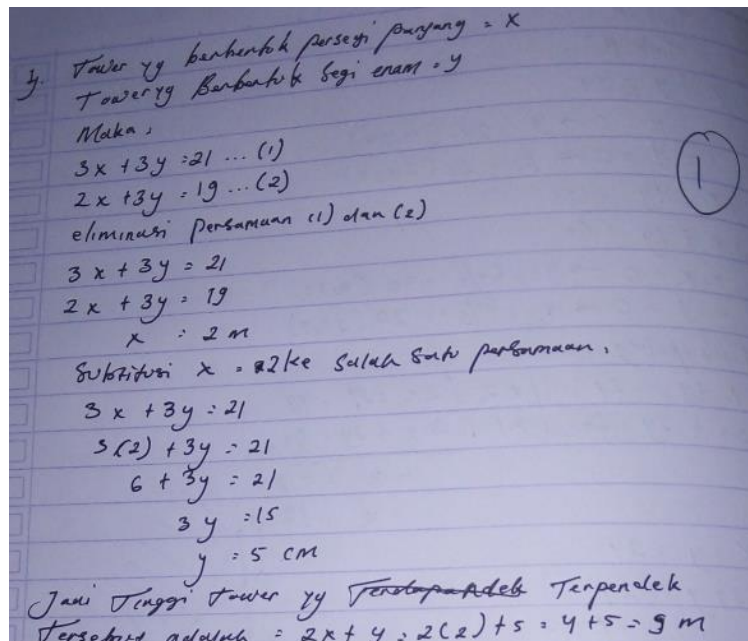 4. Tower yg berbentuk persegi panjang = x
Tower yg Berbentuk Segi enam = y
Maka,
3x + 3y = 21 ... (1)
2x + 3y = 19 ... (2)
1
eliminasi persamaan (1) dan (2)
3x + 3y = 21
2x + 3y = 19
x = 2 m
Subtitusi x = 2 ke salah satu persamaan,
3x + 3y = 21
3(2) + 3y = 21
6 + 3y = 21
3y = 15
y = 5 cm
Jadi Tinggi tower yg Terpendek
Tersebut adalah = 2x + y = 2(2) + 5 = 4 + 5 = 9 m